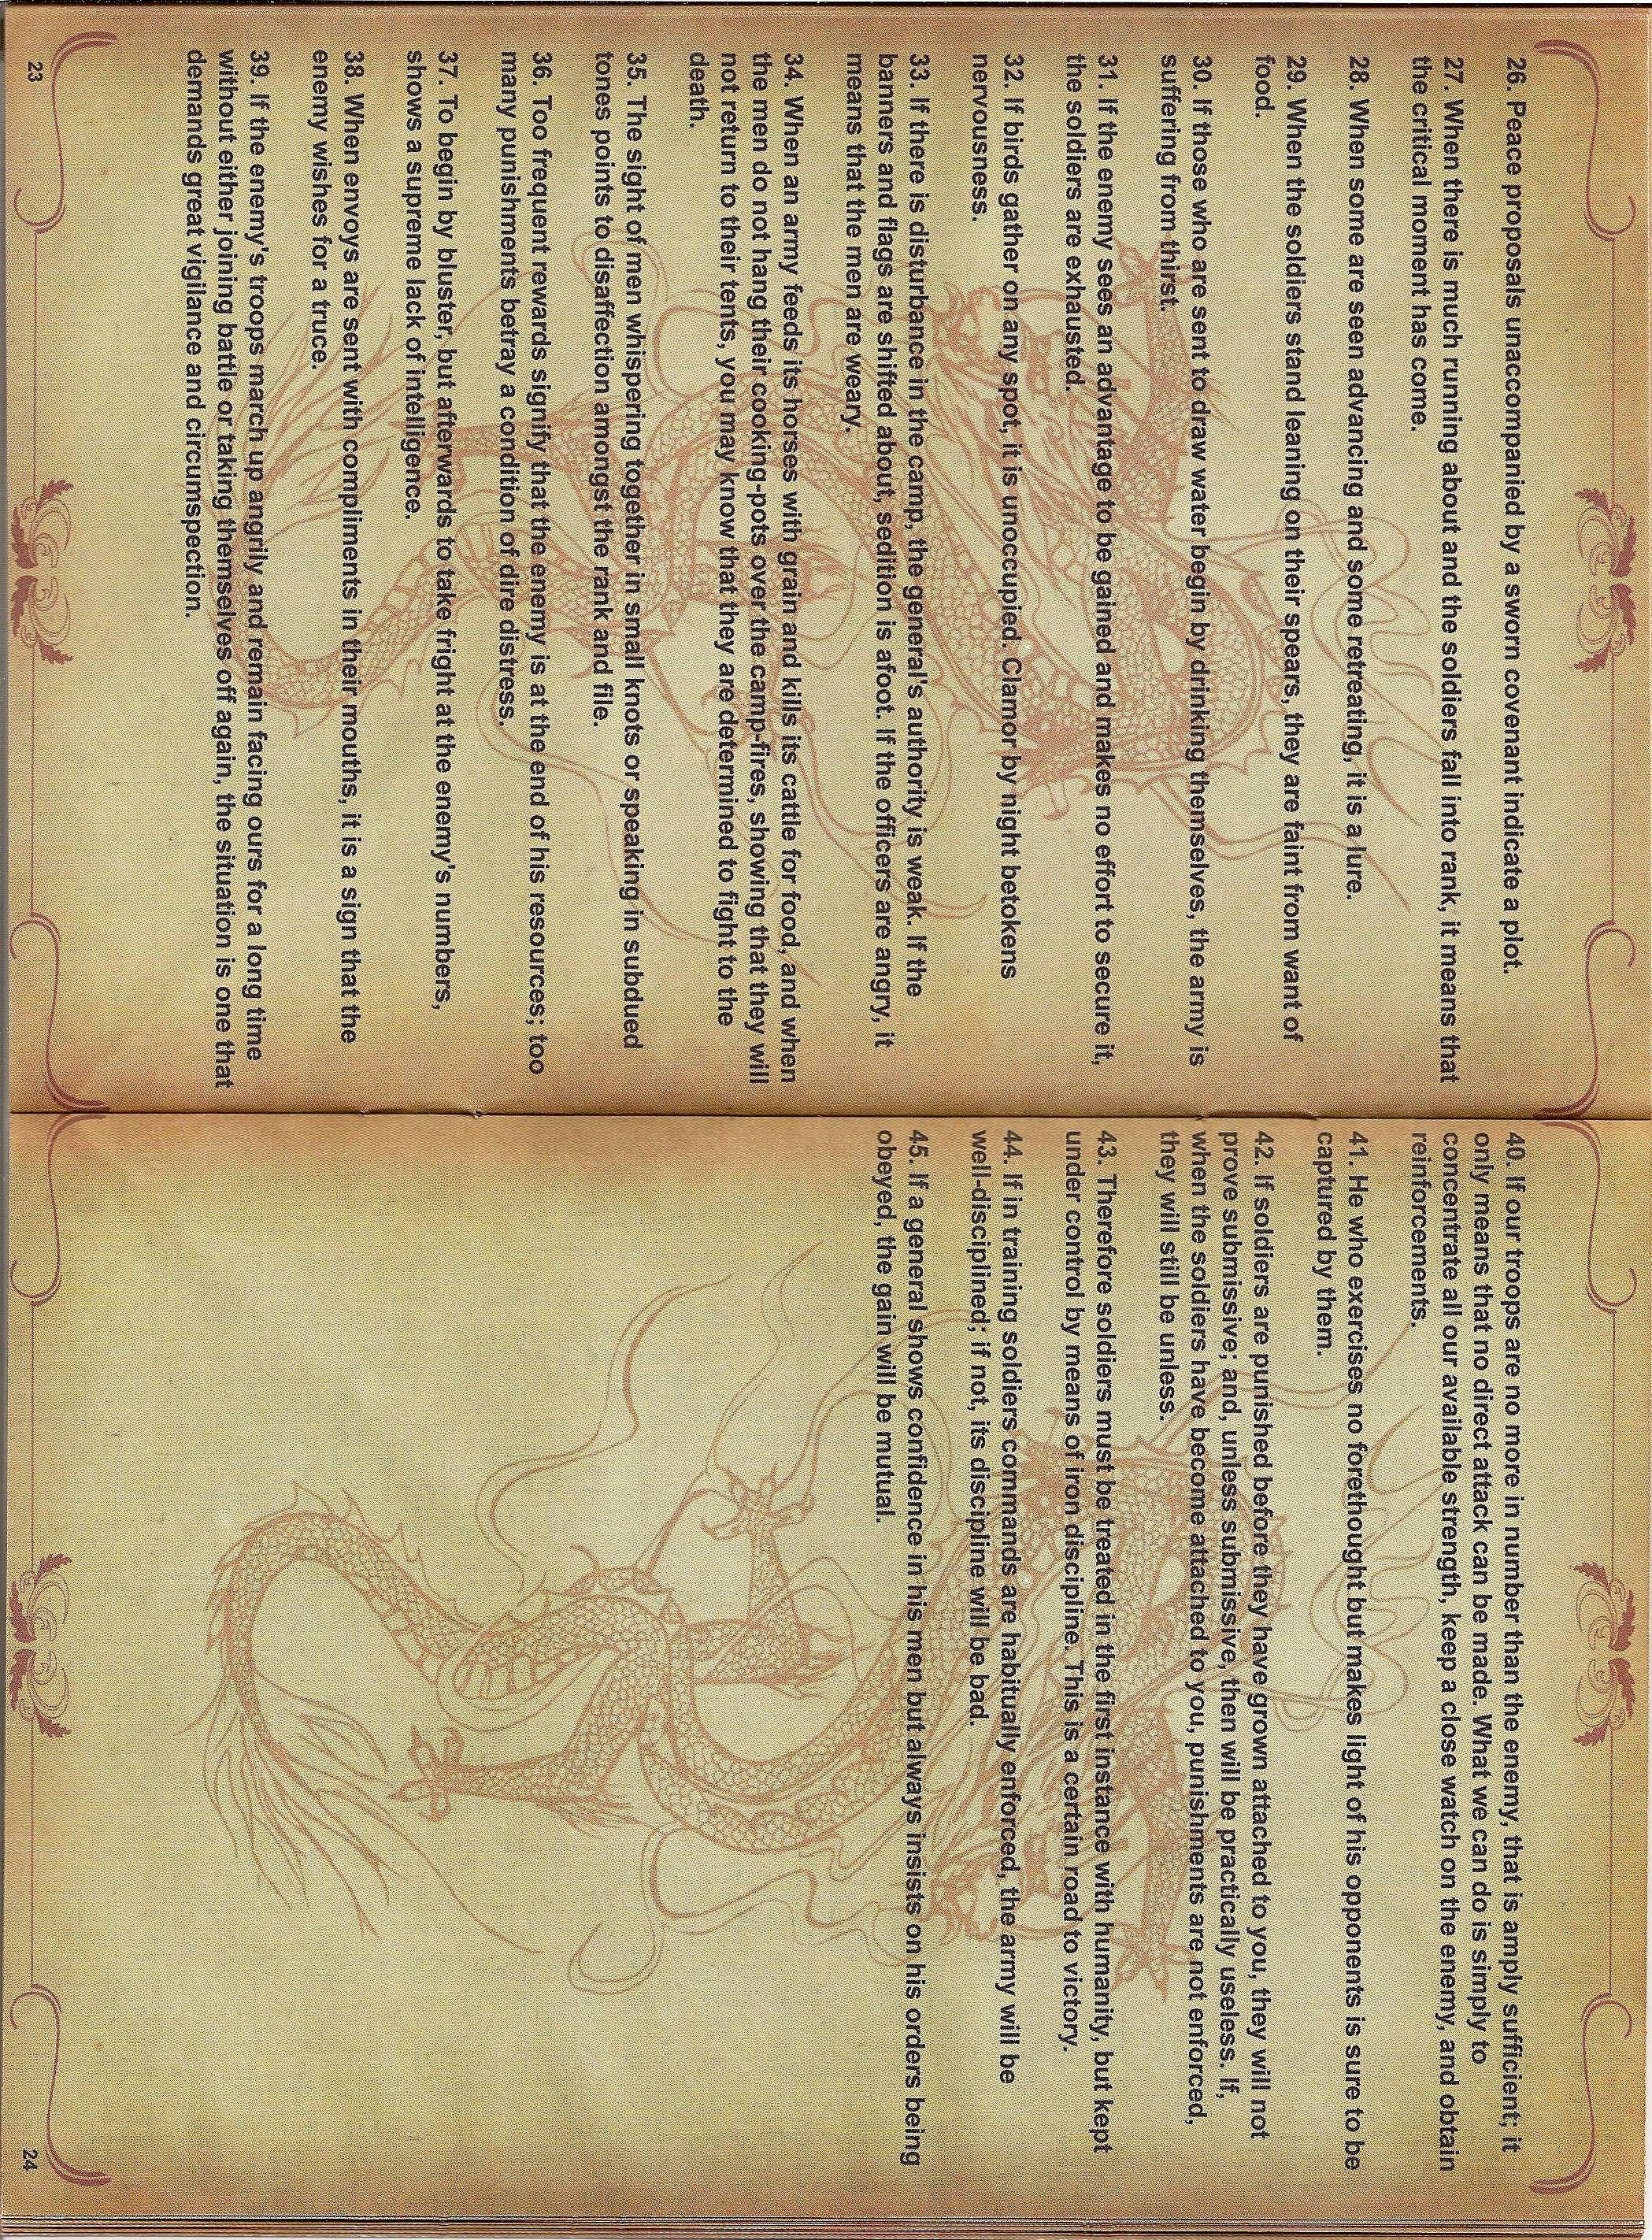 26. Peace proposals unaccompanied by a sworn covenant indicate a plot.
27. When there is much running about and the soldiers fall into rank, it means that
the critical moment has come.
28. When some are seen advancing and some retreating, it is a lure.
29. When the soldiers stand leaning on their spears, they are faint from want of
food.
30. If those who are sent to draw water begin by drinking themselves, the army is
suffering from thirst.
31. If the enemy sees an advantage to be gained and makes no effort to secure it,
the soldiers are exhausted.
32. If birds gather on any spot, it is unoccupied. Clamor by night betokens
nervousness.
33. If there is disturbance in the camp, the general's authority is weak. If the
banners and flags are shifted about, sedition is afoot. If the officers are angry, it
means that the men are weary.
34. When an army feeds its horses with grain and kills its cattle for food, and when
the men do not hang their cooking-pots over the camp-fires, showing that they will
not return to their tents, you may know that they are determined to fight to the
death.
35. The sight of men whispering together in small knots or speaking in subdued
tones points to disaffection amongst the rank and file.
36. Too frequent rewards signify that the enemy is at the end of his resources; too
many punishments betray a condition of dire distress.
37. To begin by bluster, but afterwards to take fright at the enemy's numbers,
shows a supreme lack of intelligence.
38. When envoys are sent with compliments in their mouths, it is a sign that the
enemy wishes for a truce.
39. If the enemy's troops march up angrily and remain facing ours for a long time
without either joining battle or taking themselves off again, the situation is one that
demands great vigilance and circumspection.
23
40. If our troops are no more in number than the enemy, that is amply sufficient; it
only means that no direct attack can be made. What we can do is simply to
concentrate all our available strength, keep a close watch on the enemy, and obtain
reinforcements.
41. He who exercises no forethought but makes light of his opponents is sure to be
captured by them.
42. If soldiers are punished before they have grown attached to you, they will not
prove submissive; and, unless submissive, then will be practically useless. If,
when the soldiers have become attached to you, punishments are not enforced,
they will still be unless.
43. Therefore soldiers must be treated in the first instance with humanity, but kept
under control by means of iron discipline. This is a certain road to victory.
44. If in training soldiers commands are habitually enforced, the army will be
well-disciplined; if not, its discipline will be bad.
45. If a general shows confidence in his men but always insists on his orders being
obeyed, the gain will be mutual.
24